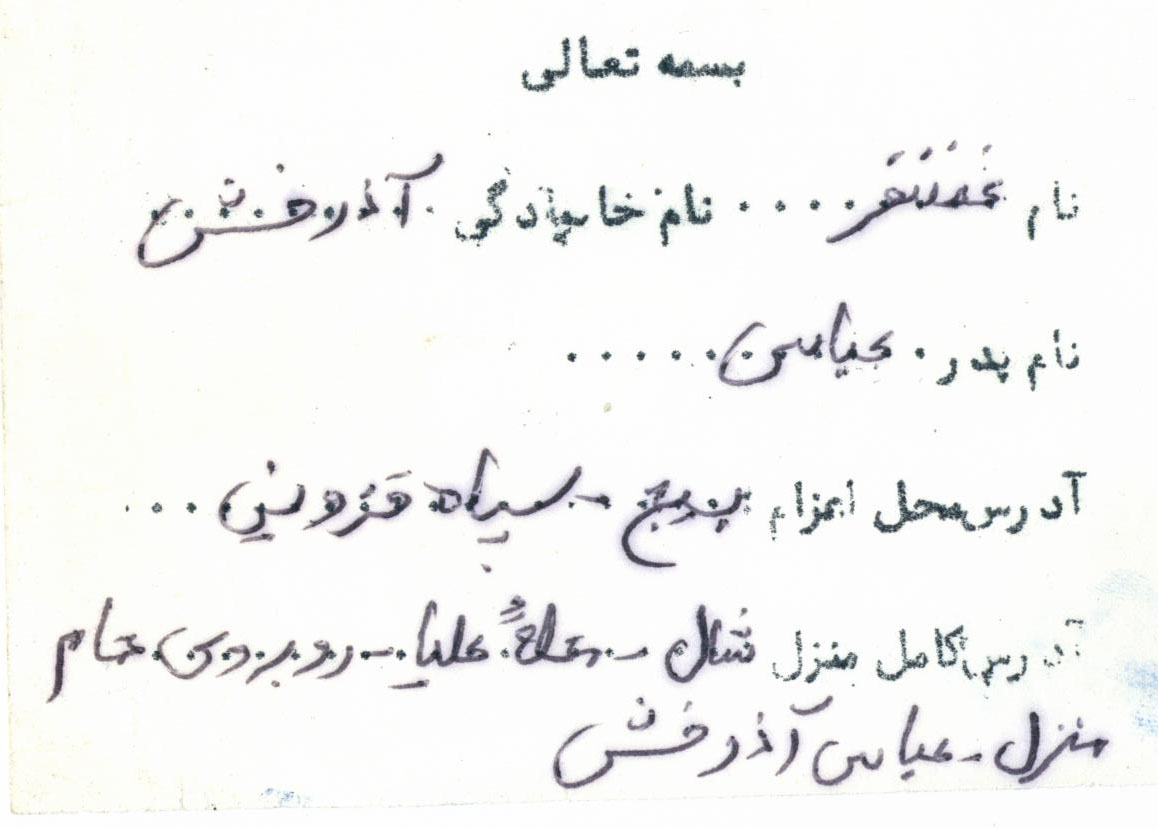 بسمه تعالی
نام غضنفر .... نام خانوادگی آذرفش
نام پدر . عباس .....
آدرس محل اعزام بسیج - سپاه قزوین ...
آدرس کامل منزل شال - محلهٔ علیا - روبروی حمام
منزل - عباس آذرفش